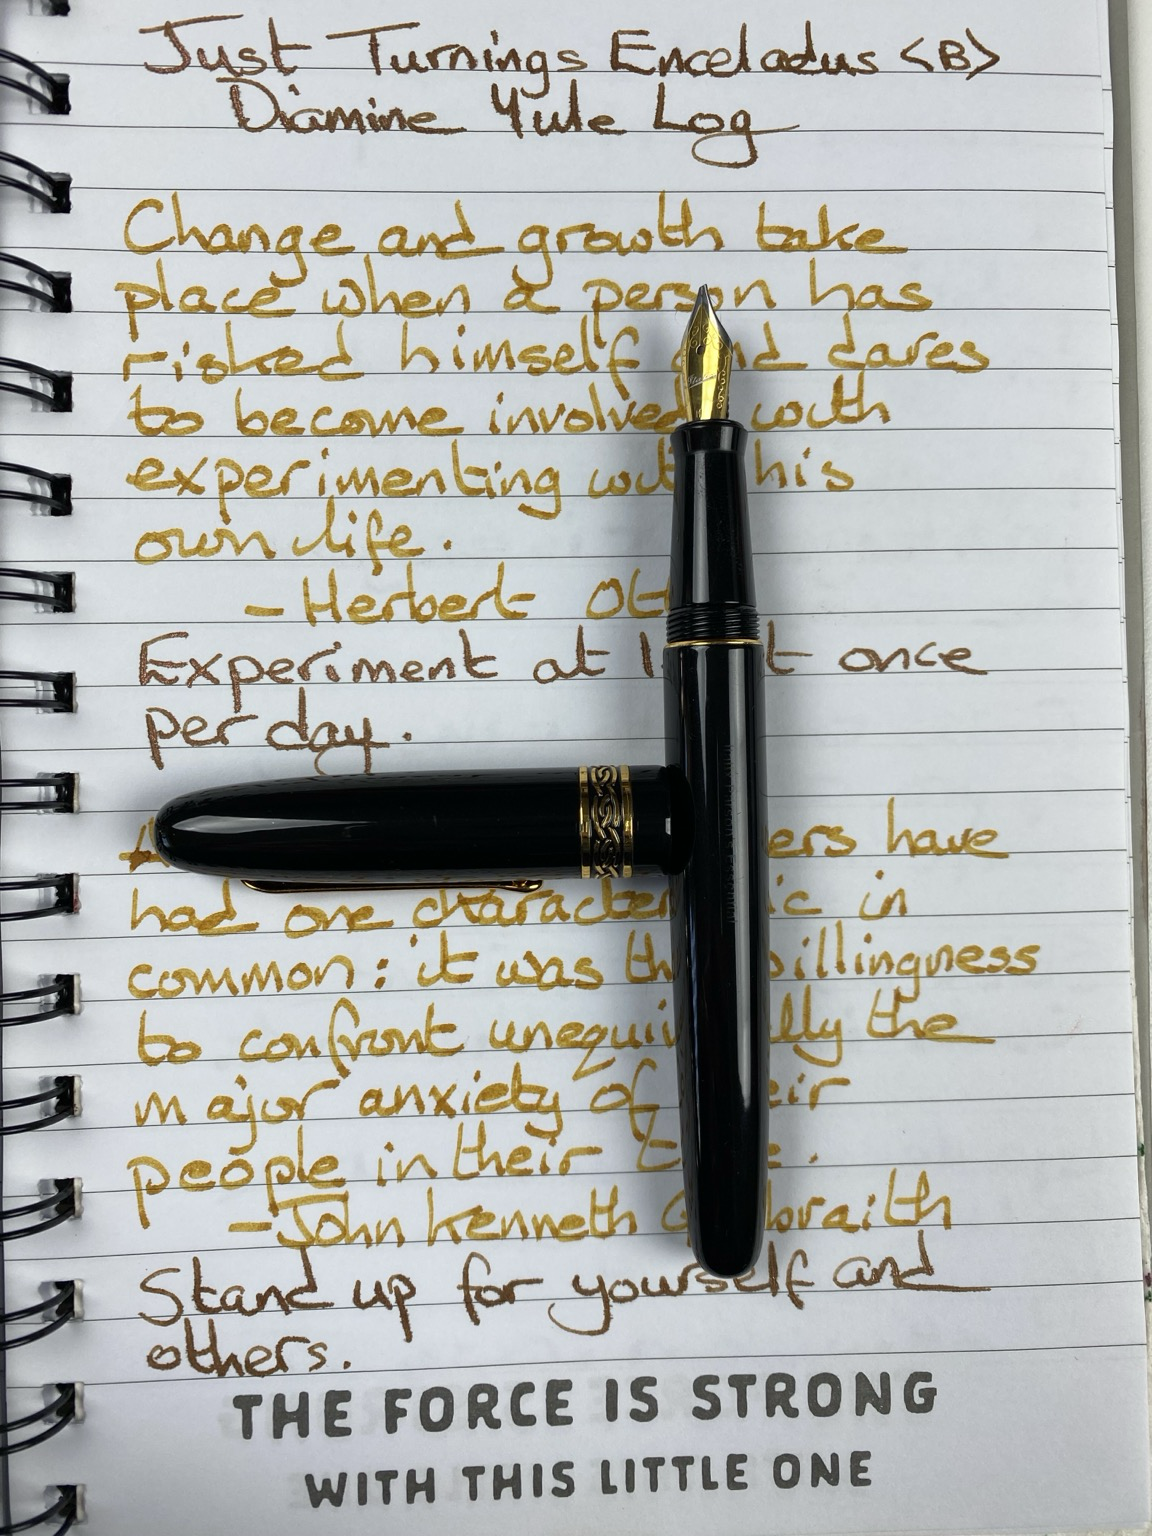 Just Turnings Enceladus <B>
Diamine Yule Log
Change and growth take
place when a person has
risked himself and dares
to become involved with
experimenting with his
own life.
- Herbert
Experiment at once
per day.
have
had one in
common: it was willingness
to confront the
major anxiety of
people in their
- John Kenneth Galbraith
Stand up for yourself and
others.
THE FORCE IS STRONG
WITH THIS LITTLE ONE